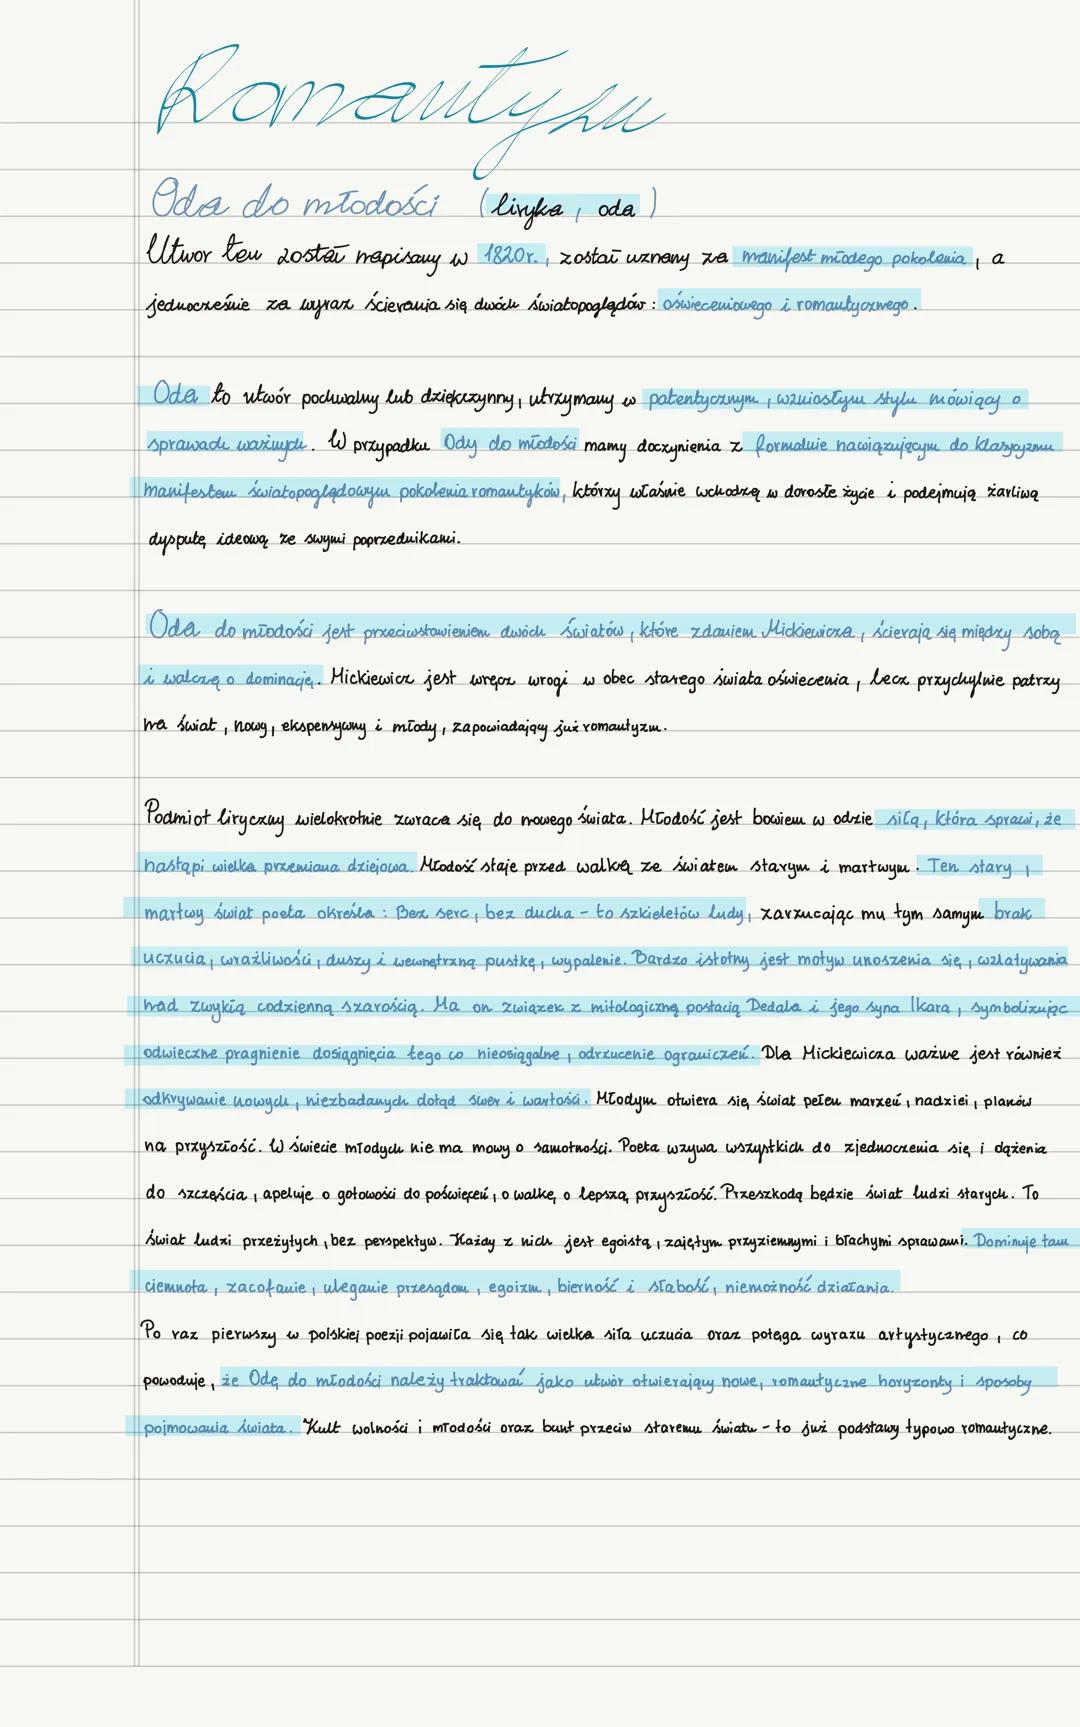 Romantyzm
Oda do młodości (liryka, oda)
Utwór ten został napisany w 1820r., został uznany za manifest młodego pokolenia, a
jednocześnie za wyraz ścierania się dwóch światopoglądów: oświeceniowego i romantycznego.
Oda to utwór pochwalny lub dziękczynny, utrzymany w patentycznym, wzniosłym stylu mówiący o
sprawach ważnych. W przypadku Ody do młodości mamy doczynienia z formalnie nawiązującym do klasycyzmu
manifestem światopoglądowym pokolenia romantyków, którzy właśnie wchodzą w dorosłe życie i podejmują żarliwą
dysputę ideową ze swymi poprzednikami.
Oda do młodości jest przeciwstawieniem dwóch światów, które zdaniem Mickiewicza, ścierają się między sobą
i walczą o dominację. Mickiewicz jest wręcz wrogi w obec starego świata oświecenia, lecz przychylnie patrzy
na świat, nowy, ekspensywny i młody, zapowiadający już romantyzm.
Podmiot liryczny wielokrotnie zwraca się do nowego świata. Młodość jest bowiem w odzie siłą, która sprawi, że
nastąpi wielka przemiana dziejowa. Młodość staje przed walką ze światem starym i martwym. Ten stary,
martwy świat poeta określa: Bez serc, bez ducha - to szkieletów ludy, zarzucając mu tym samym brak
uczucia, wrażliwości, duszy i wewnętrzną pustkę, wypalenie. Bardzo istotny jest motyw unoszenia się, wzlatywania
nad zwykłą codzienną szarością. Ma on związek z mitologiczną postacią Dedala i jego syna Ikara, symbolizując
odwieczne pragnienie dosiągnięcia tego co nieosiągalne, odrzucenie ograniczeń. Dla Mickiewicza ważne jest również
odkrywanie nowych, niezbadanych dotąd swer i wartości. Młodym otwiera się świat pełen marzeń, nadziei, planów
na przyszłość. W świecie młodych nie ma mowy o samotności. Poeta wzywa wszystkich do zjednoczenia się i dążenia
do szczęścia, apeluje o gotowości do poświęceń, o walkę, o lepszą, przyszłość. Przeszkodą będzie świat ludzi starych. To
świat ludzi przeżytych, bez perspektyw. Każdy z nich jest egoistą, zajętym przyziemnymi i błachymi sprawami. Dominuje tam
ciemnota, zacofanie, uleganie przesądom, egoizm, bierność i słabość, niemożność działania.
Po raz pierwszy w polskiej poezji pojawiła się tak wielka siła uczucia oraz potęga wyrazu artystycznego, co
powoduje, że Odę do młodości należy traktować jako utwór otwierający nowe, romantyczne horyzonty i sposoby
pojmowania świata. Kult wolności i młodości oraz bunt przeciw staremu światu - to już podstawy typowo romantyczne.